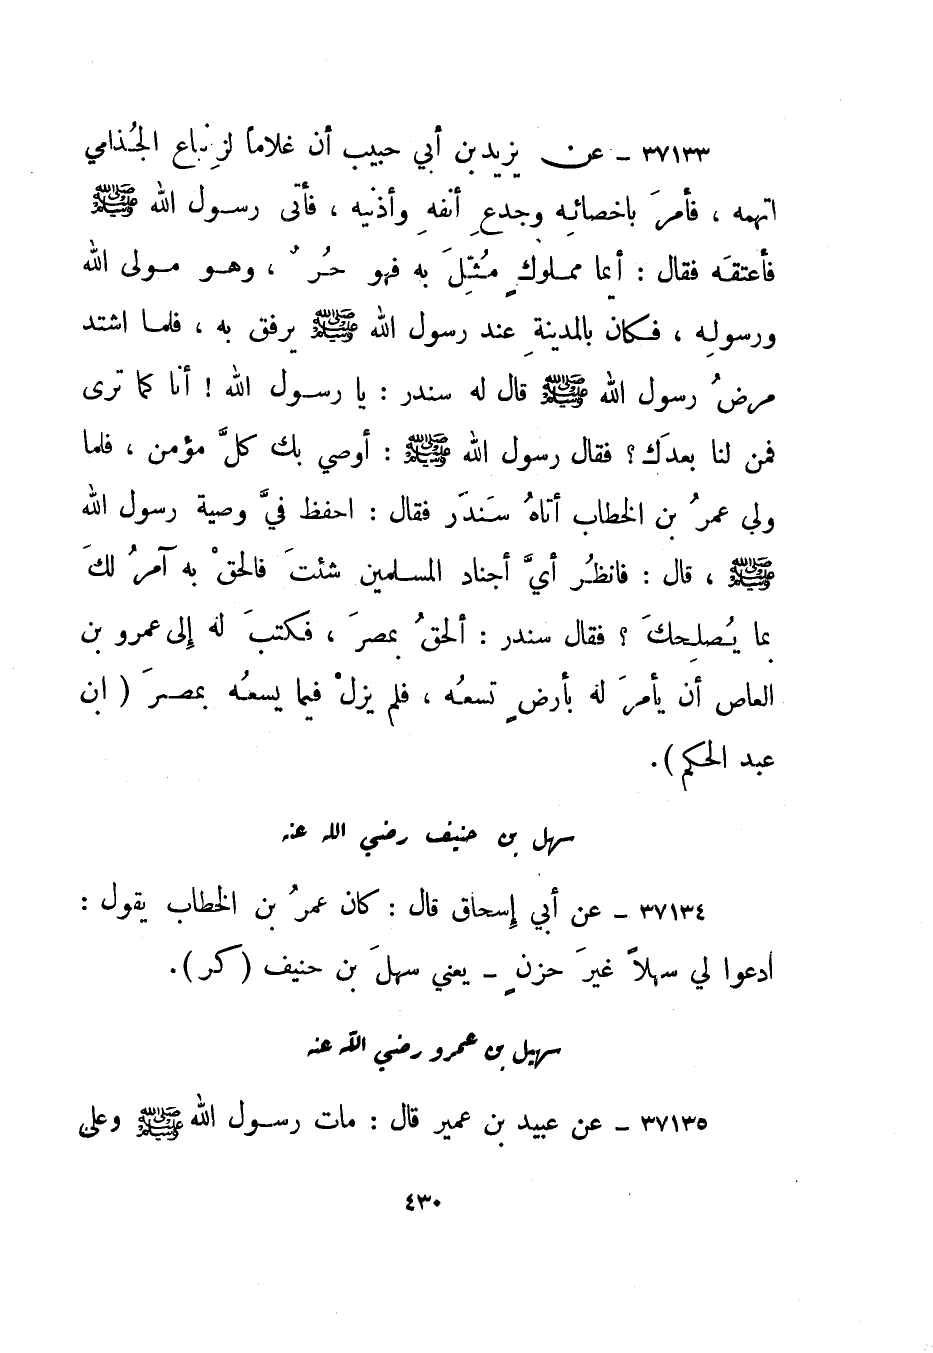 ٣٧١٣٣ ـ عن يزيد بن أبي حبيب أن غلاماً لزِنباع الجُذامي
اتهمه ، فأمرَ باخصائهِ وجدعِ أنفهِ وأذنيه ، فأتى رسول الله ﷺ
فأعتقَه فقال : أيما مملوكٍ مُثِّلَ به فهو حُرٌ ، وهو مولى الله
ورسولِه ، فكان بالمدينةِ عند رسول الله ﷺ يرفق به ، فلما اشتد
مرضُ رسول الله ﷺ قال له سندر : يا رسول الله ! أنا كما ترى
فمن لنا بعدكَ ؟ فقال رسول الله ﷺ : أوصي بك كلَّ مؤمن ، فلما
ولي عمرُ بن الخطاب أتاهُ سَندَر فقال : احفظ فيَّ وصية رسول الله
ﷺ ، قال : فانظُر أيَّ أجناد المسلمين شئتَ فالحقْ به آمرُ لكَ
بما يُصلِحكَ ؟ فقال سندر : ألحقُ بمصرَ ، فكتبَ له إِلى عمرو بن
العاص أن يأمرَ له بأرضٍ تسعُه ، فلم يزلْ فيما يسعُه بمصرَ ( ابن
عبد الحكم ).
سهل بن حنيف رضي الله عنه
٣٧١٣٤ ـ عن أبي إِسحاق قال : كان عمرُ بن الخطاب يقول :
أدعوا لي سهلاً غيرَ حزنٍ ـ يعني سهلَ بن حنيف ( كر ).
سهيل بن عمرو رضي الله عنه
٣٧١٣٥ ـ عن عبيد بن عمير قال : مات رسول الله ﷺ وعلى
٤٣٠